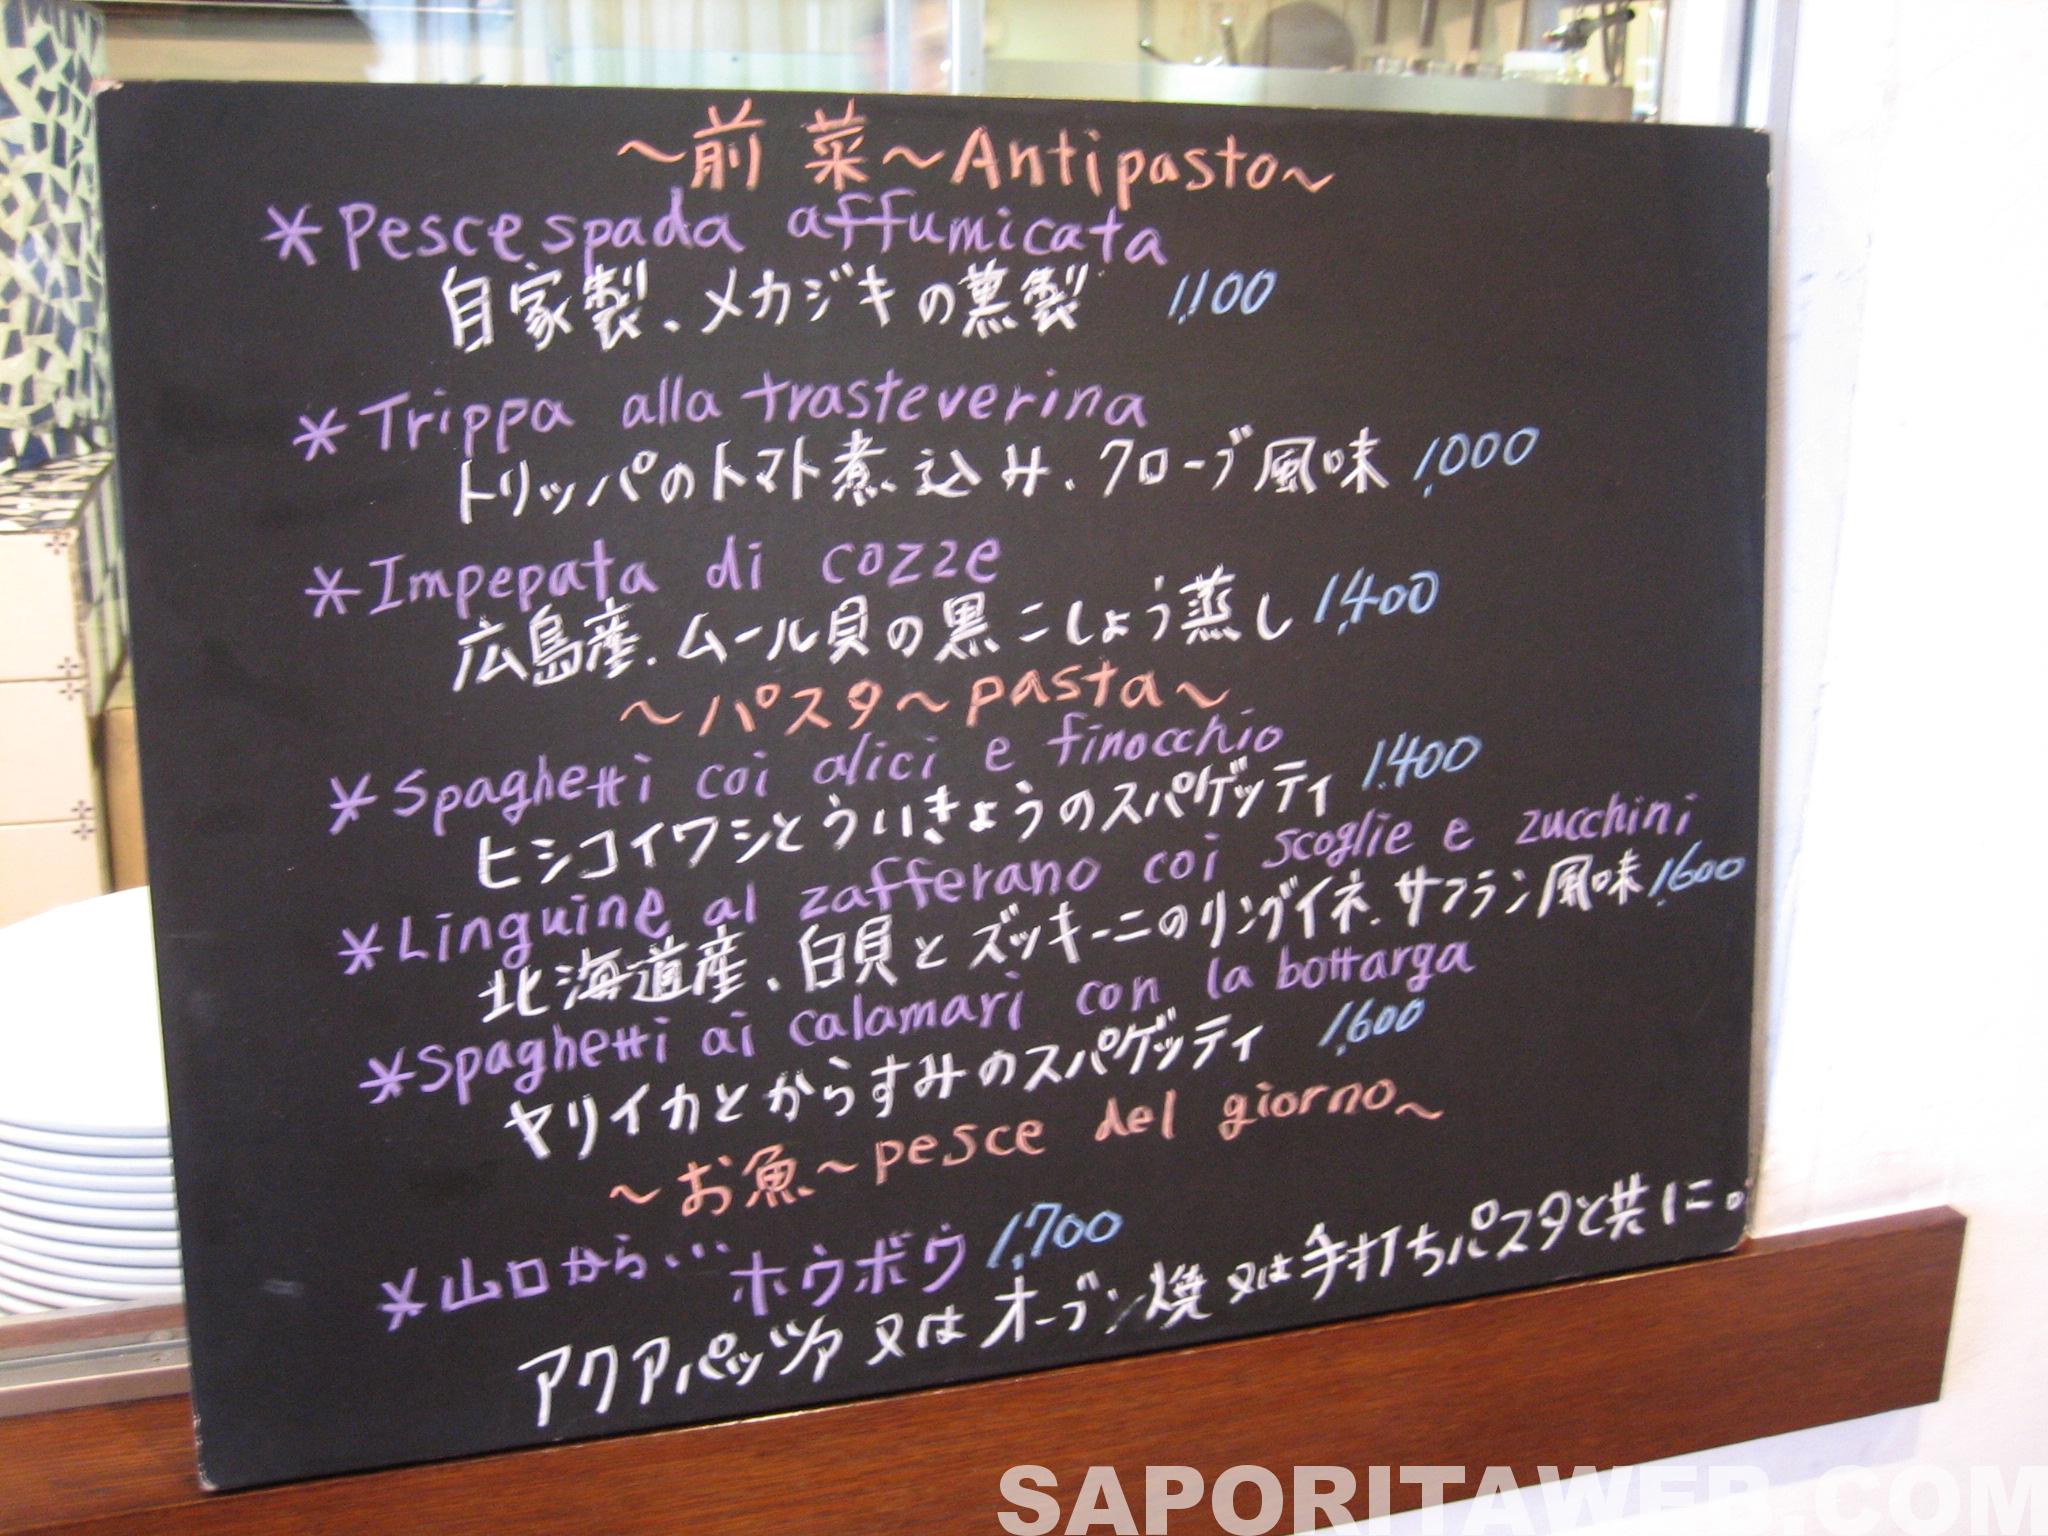 ~前菜~Antipasto~
*Pescespada affumicata
自家製、メカジキの薫製 1,100
*Trippa alla trasteverina
トリッパのトマト煮込み、クローブ風味 1,000
*Impepata di cozze
広島産、ムール貝の黒こしょう蒸し 1,400
~パスタ~pasta~
*Spaghetti coi alici e finocchio
ヒシコイワシとういきょうのスパゲッティ 1,400
*Linguine al zafferano coi scoglie e zucchini
北海道産、白貝とズッキーニのリングイネ、サフラン風味 1,600
*Spaghetti ai calamari con la bottarga
ヤリイカとからすみのスパゲッティ 1,600
~お魚~pesce del giorno~
*山口から... ホウボウ 1,700
アクアパッツァ又はオーブン焼又は手打ちパスタと共に。
SAPORITAWEB.COM